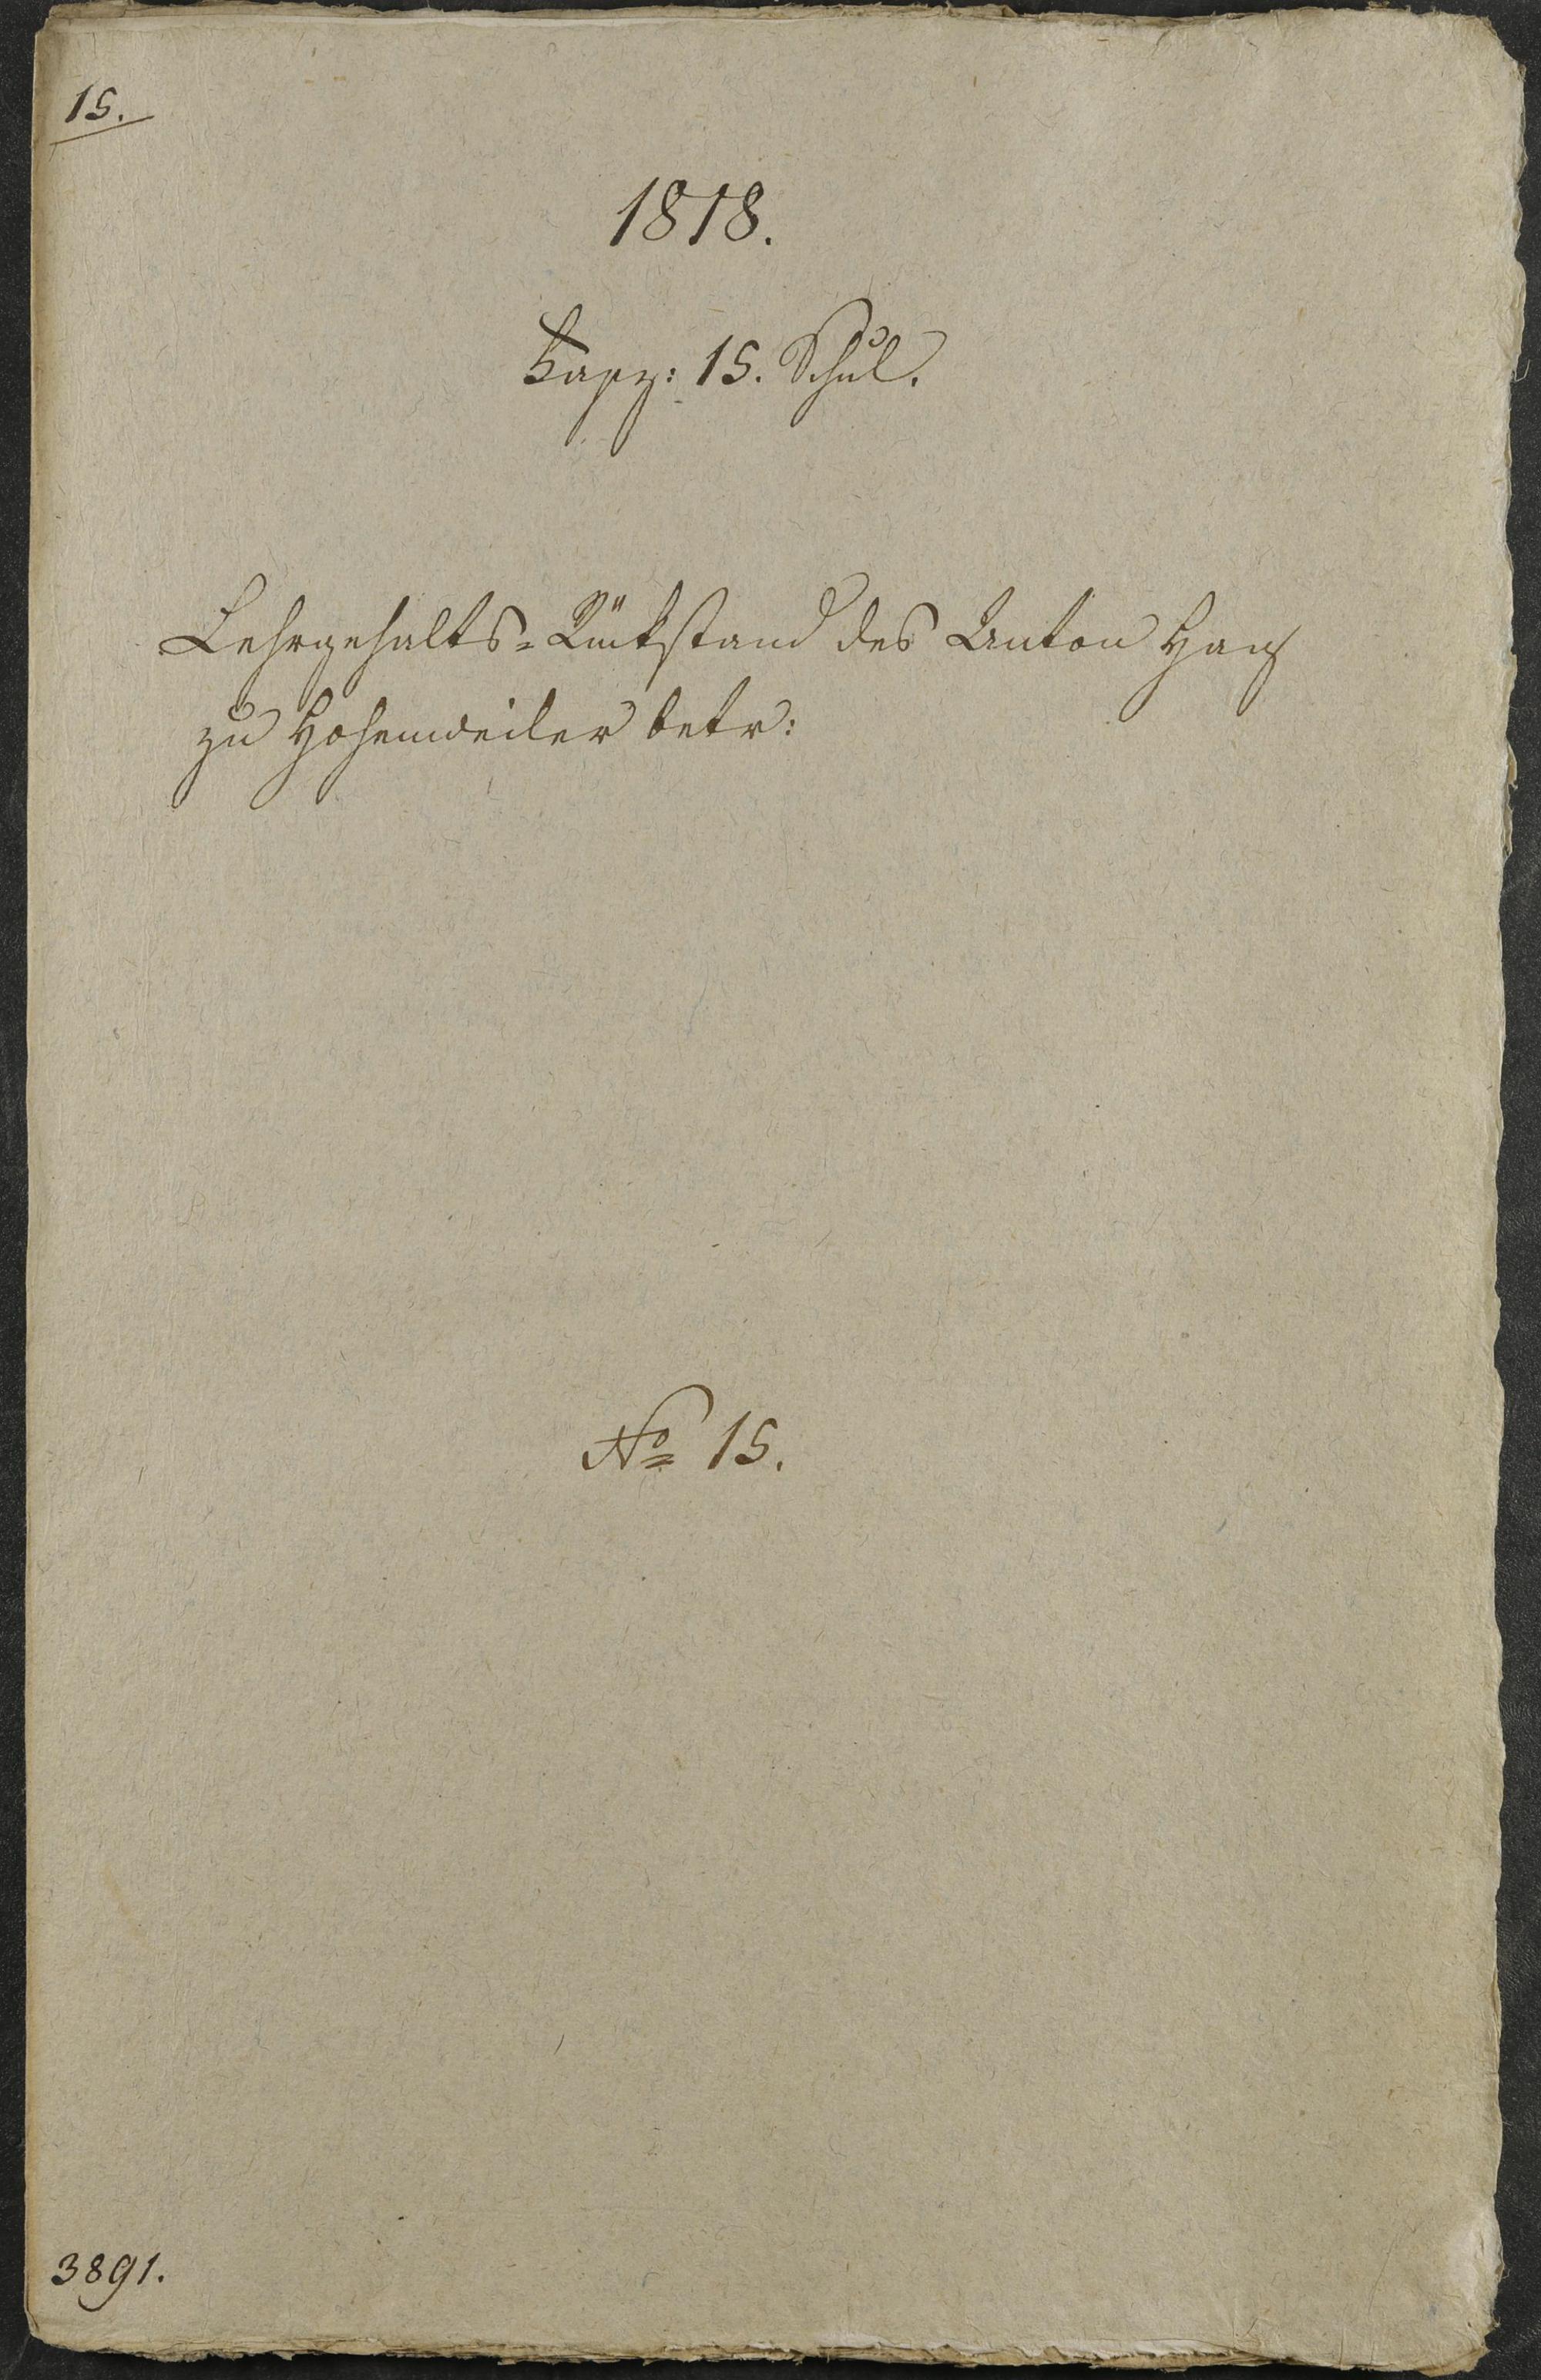 15.
1818.
Fasz: 15. Schul.
Lehrgehalts-Rückstand des Anton Hag
zu Hohenweiler betr:
No 15.
3891.